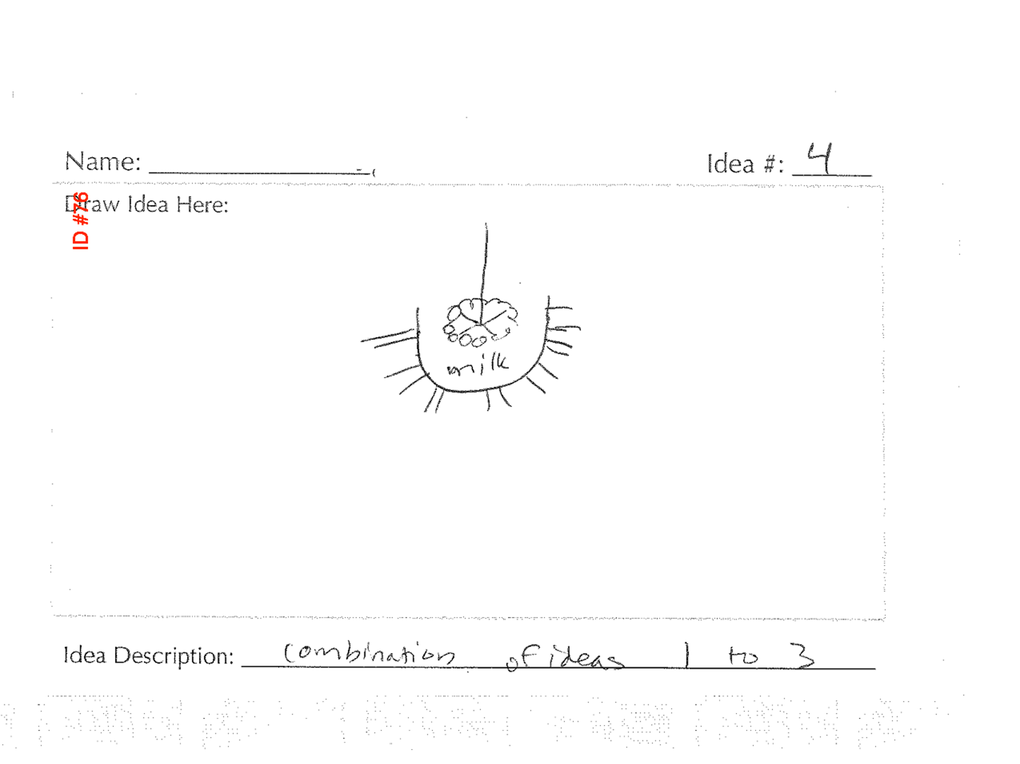 Name:
Idea #: 4
ID #76
Draw Idea Here:
milk
Idea Description: combination of ideas 1 to 3